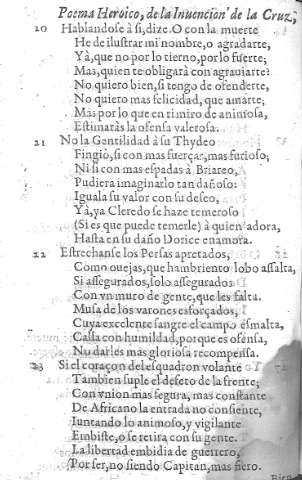 Poema Heroico, de la Inuencion de la Cruz,
20 Hablandose à si, dize. O con la muerte
He de ilustrar mi nombre, o agradarte,
Yà, que no por lo tierno, por lo fuerte;
Mas, quien te obligarà con agrauiarte?
No quiero bien, si tengo de ofenderte,
No quiero mas felicidad, que amarte;
Mas por lo que en ti miro de animosa,
Estimaràs la ofensa valerosa.
21 No la Gentilidad à su Thydeo
Fingiò, si con mas fuerças, mas furioso;
Ni si con mas espadas à Briareo,
Pudiera imaginarlo tan dañoso:
Iguala su valor con su deseo,
Yà, ya Cleredo se haze temeroso
(Si es que puede temerle) à quien adora,
Hasta en su daño Dorice enamora.
22 Estrechanse los Persas apretados,
Como ouejas, que hambriento lobo assalta,
Si assegurados, solo assegurados
Con vn muro de gente, que les falta.
Musa de los varones esforçados,
Cuya excelente sangre el campo esmalta,
Calla con humildad, porque es ofensa,
No darles mas gloriosa recompensa.
23 Si el coraçon del esquadron volante
Tambien suple el defeto de la frente;
Con vnion mas segura, mas constante
De Africano la entrada no consiente,
Iuntando lo animoso, y vigilante
Embiste, o se retira con su gente.
La libertad embidia de guerrero,
Por ser, no siendo Capitan, mas fiero.